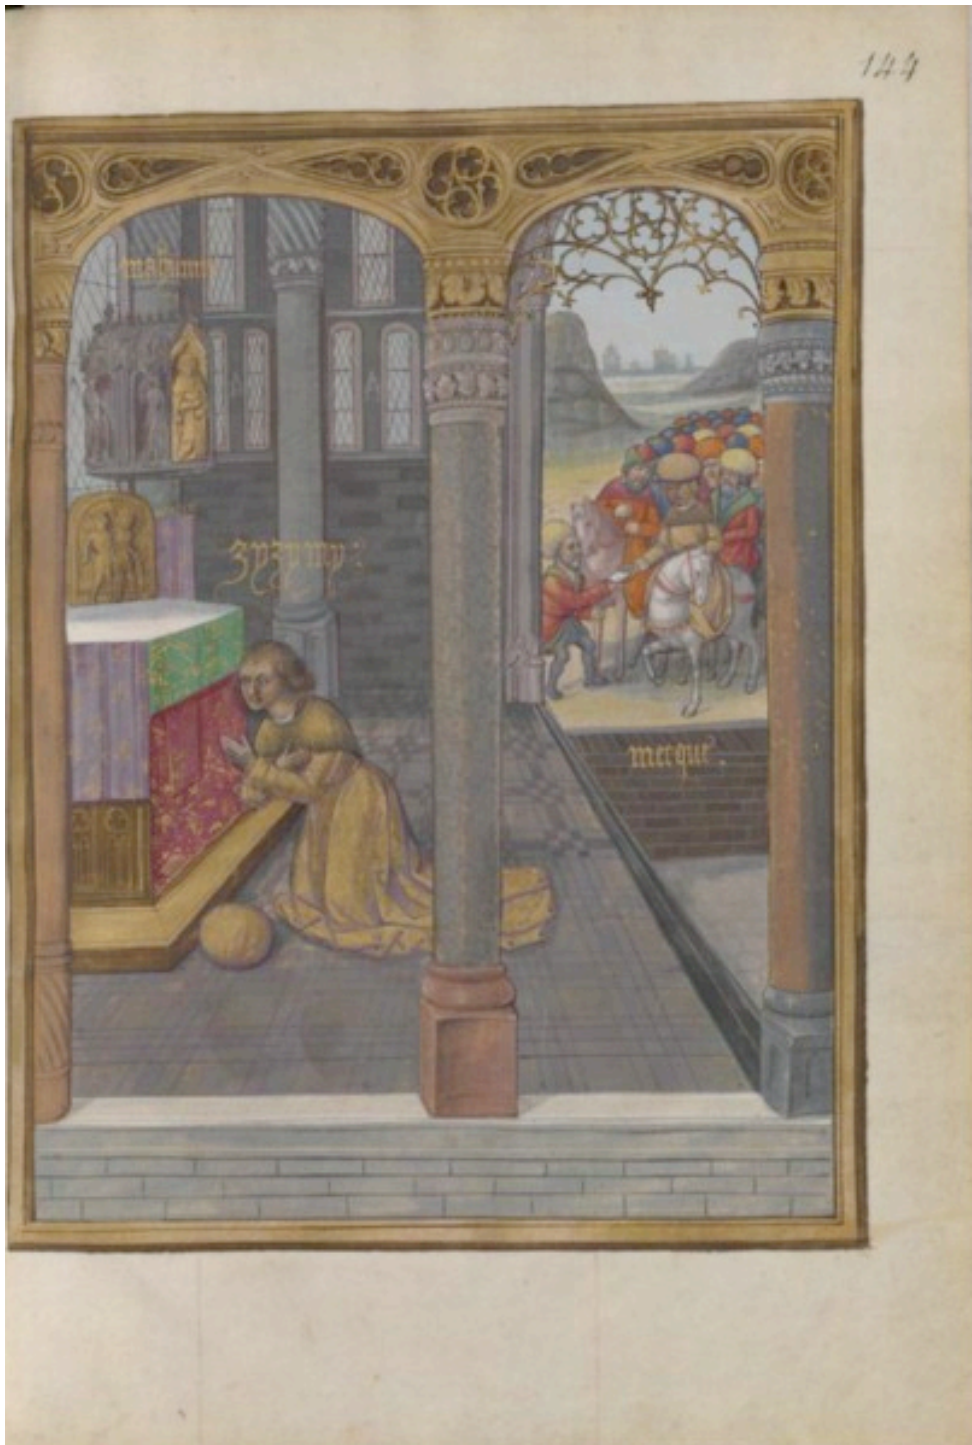 144
zyzymy :
mecque .